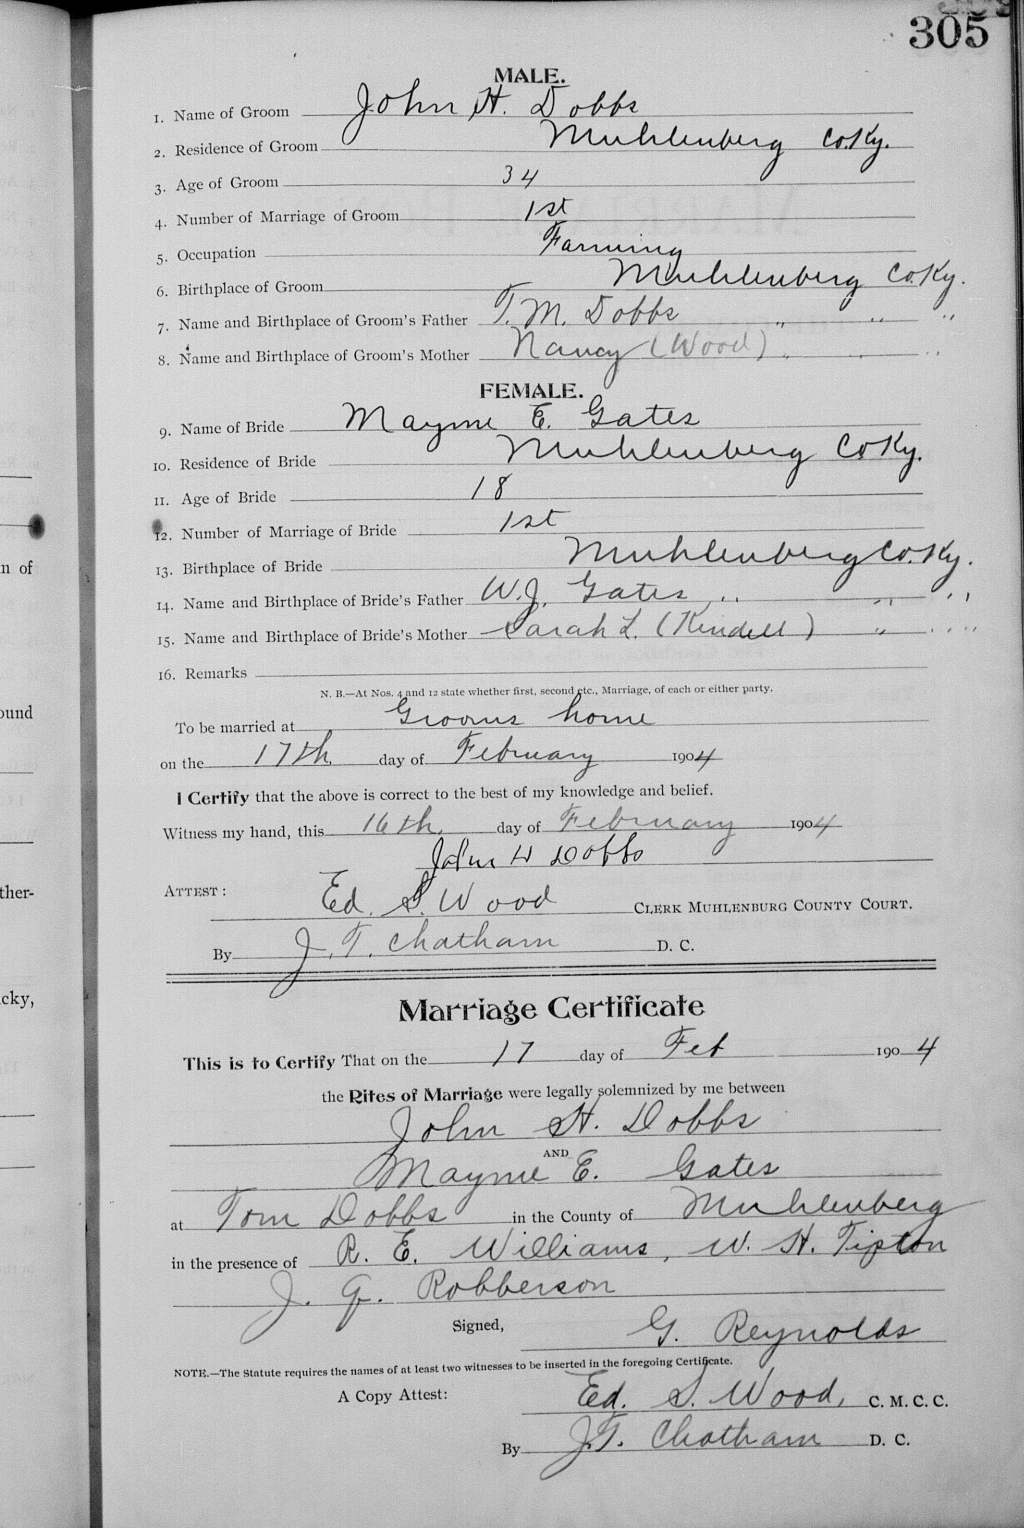 305
MALE.
1. Name of Groom John H. Dobbs
2. Residence of Groom Muhlenberg Co. Ky.
3. Age of Groom 34
4. Number of Marriage of Groom 1st
5. Occupation Farming
6. Birthplace of Groom Muhlenberg Co. Ky.
7. Name and Birthplace of Groom's Father T. M. Dobbs " " "
8. Name and Birthplace of Groom's Mother Nancy (Wood) " " "
FEMALE.
9. Name of Bride Mayme E. Gates
10. Residence of Bride Muhlenberg Co Ky.
11. Age of Bride 18
12. Number of Marriage of Bride 1st
13. Birthplace of Bride Muhlenberg Co. Ky.
14. Name and Birthplace of Bride's Father W. J. Gates " " "
15. Name and Birthplace of Bride's Mother Sarah L. (Kindell) " " "
16. Remarks
N. B.—At Nos. 4 and 12 state whether first, second etc., Marriage, of each or either party.
To be married at Grooms home
on the 17th day of February 1904
I Certify that the above is correct to the best of my knowledge and belief.
Witness my hand, this 16th. day of February 1904
John H Dobbs
ATTEST: Ed. S. Wood CLERK MUHLENBURG COUNTY COURT.
By J. T. Chatham D. C.
Marriage Certificate
This is to Certify That on the 17 day of Feb 1904
the Rites of Marriage were legally solemnized by me between
John H. Dobbs
AND
Mayme E. Gates
at Tom Dobbs in the County of Muhlenberg
in the presence of R. E. Williams, W. H. Tipton
J. G. Robberson
Signed, G. Reynolds
NOTE.—The Statute requires the names of at least two witnesses to be inserted in the foregoing Certificate.
A Copy Attest: Ed. S. Wood, C. M. C. C.
By J. T. Chatham D. C.
n of
ound
ther-
cky,